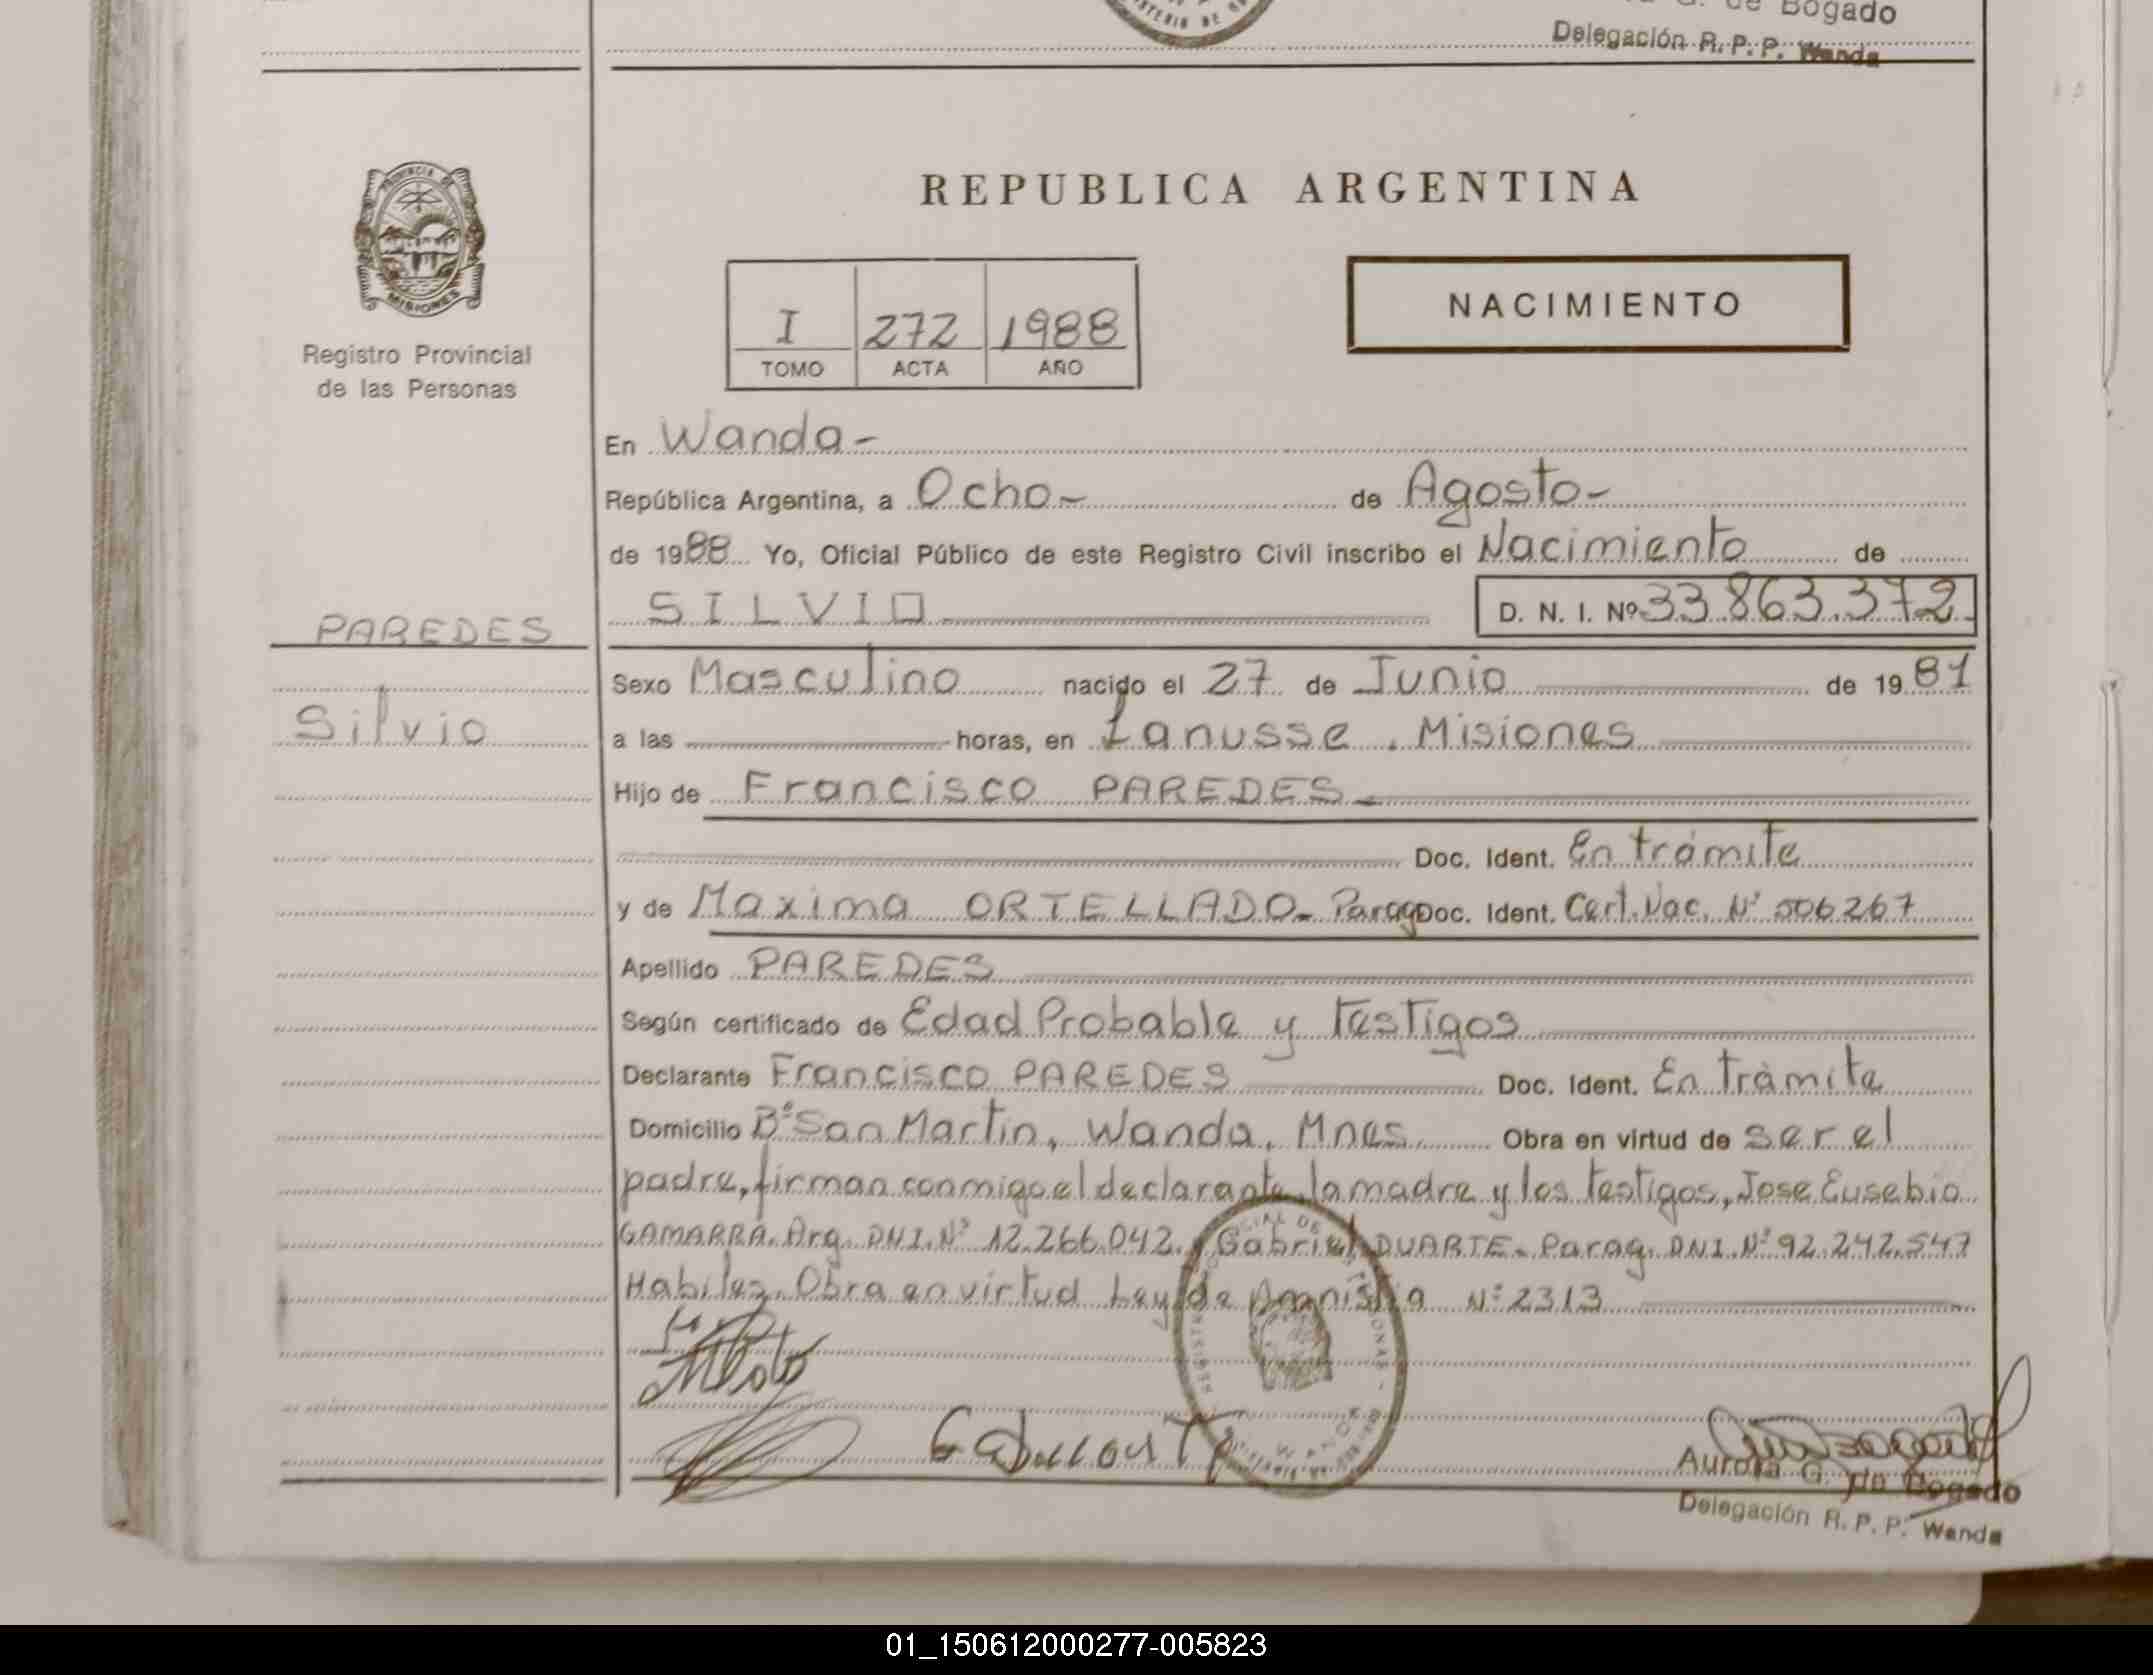 de Bogado
Delegación R. P. P. Wanda
PROVINCIA DE
MISIONES
Registro Provincial
de las Personas
REPUBLICA ARGENTINA
I 272 1988
TOMO ACTA AÑO
NACIMIENTO
En Wanda-
República Argentina, a Ocho- de Agosto-
de 1988 Yo, Oficial Público de este Registro Civil inscribo el Nacimiento de
SILVIO D. N. I. Nº 33.863.372
PAREDES
Sexo Masculino nacido el 27 de Junio de 1981
Silvio
a las horas, en Lanusse. Misiones
Hijo de Francisco PAREDES-
Doc. Ident. En trámite
y de Maxima ORTELLADO- Parag Doc. Ident. Cert. Nac. Nº 506267
Apellido PAREDES
Según certificado de Edad Probable y Testigos
Declarante Francisco PAREDES Doc. Ident. En Tràmite
Domicilio Bº San Martin, Wanda, Mnes Obra en virtud de ser el
padre, firman conmigo el declarante, la madre y los testigos, Jose Eusebio
GAMARRA. Arg. DNI. Nº 12.266.042. y Gabriel DUARTE- Parag. DNI. Nº 92.242.547
Habiles. Obra en virtud Ley de Amnistia Nº 2313
Aurora G. de Bogado
Delegación R. P. P. Wanda
01_150612000277-005823